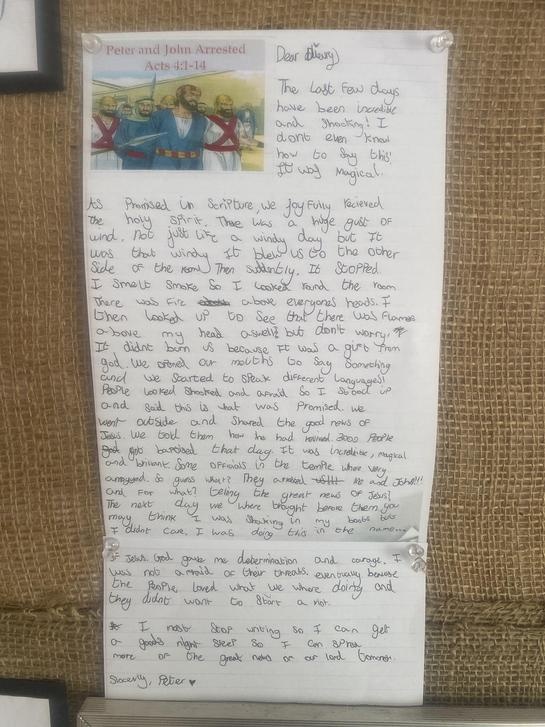 Peter and John Arrested
Acts 4:1-14
Dear diary,
The last few days
have been incredible
and shocking! I
dont even know
how to say this!
It was magical.
As Promised in Scripture, we joyfully recieved
the holy spirit. There was a huge gust of
wind. not just like a windy day but it
was that windy it blew us to the other
side of the room. Then suddently, it stopped.
I smelt smoke so I looked round the room
There was fire above everyones heads. I
then looked up to see that there was flames
above my head aswell! but don't worry!
It didnt burn us because it was a gift from
god. We opened our mouths to say something
and we started to speak different languages!
People looked shocked and afraid so I stood up
and said this is what was promised. we
went outside and shared the good news of
Jesus. We told them how he had 3000 People
got baptised that day. It was incredible, magical
and brilliant. Some officials in the temple where very
annoyed. so guess what? They arrested me and John!!!
and for what? teling the great news of Jesus!
The next day we where brought before them you
may think I was shaking in my boots but
I didnt care. I was doing this in the name...
of Jesus. God gave me determination and courage. I
was not afraid of their threats. eventually because
the People loved what we where doing and
they didnt want to start a riot.
I must stop writing so I can get
a goods night sleep so I can spred
more of the great news of our lord tomorow.
Sincerly, Peter ♥